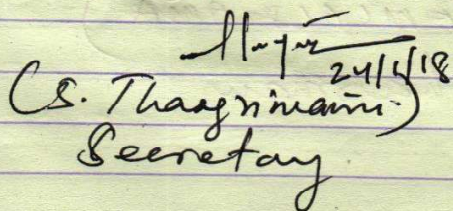 24/1/18
(S. Thangrimaim.)
Secretary